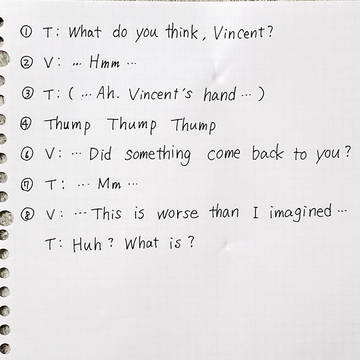 ① T: What do you think, Vincent?
② V: … Hmm …
③ T: (… Ah. Vincent's hand …)
④ Thump Thump Thump
⑥ V: … Did something come back to you?
⑦ T: … Mm …
⑧ V: … This is worse than I imagined …
T: Huh? What is?